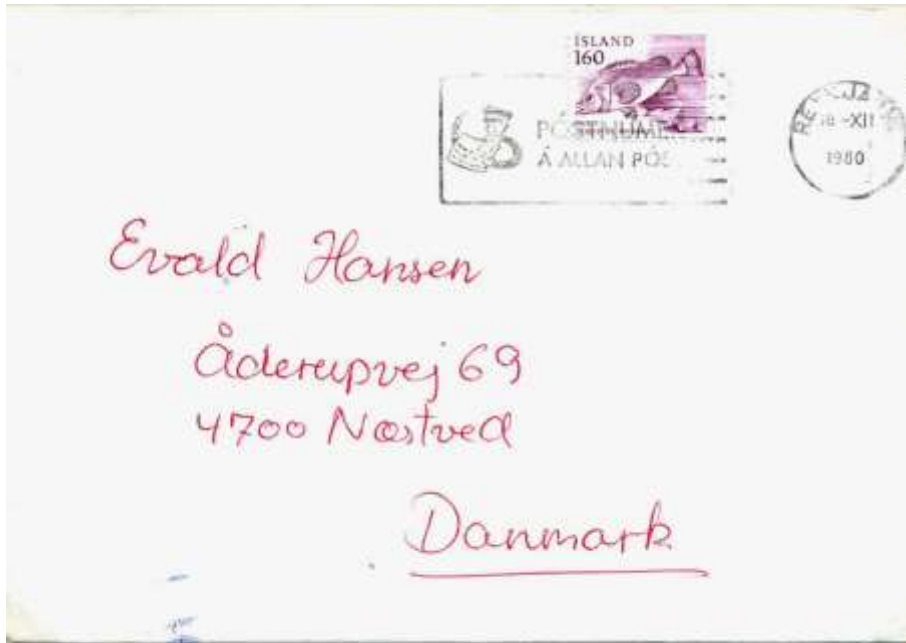 ÍSLAND
160
PÓSTNÚMER
Á ALLAN PÓST
REYKJAVÍK
18 -XII
1980
Evald Hansen
Åderupvej 69
4700 Næstved
Danmark